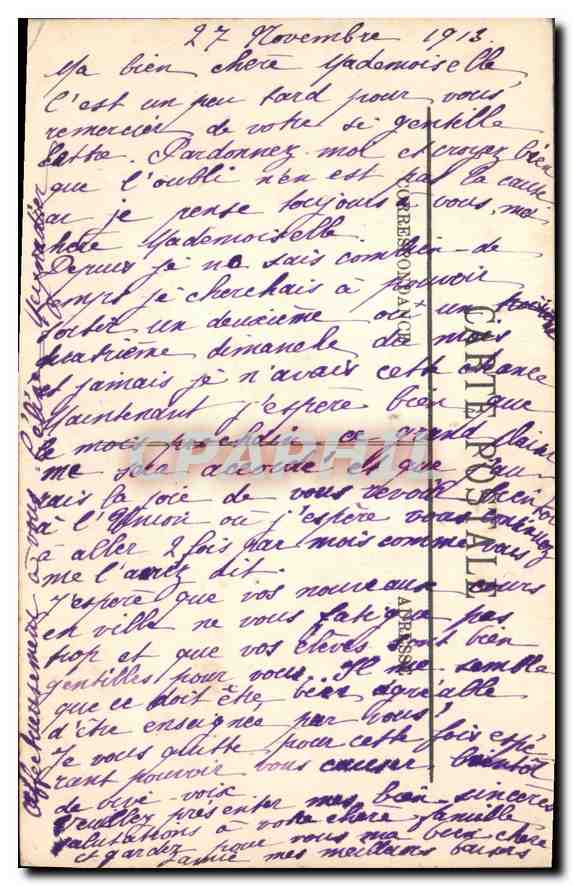 27 Novembre 1913.
Ma bien chère Mademoiselle
C'est un peu tard pour vous
remercier de votre si gentille
lettre. Pardonnez-moi et croyez bien
que l'oubli n'en est pas la cause
car je pense toujours à vous, ma
chère Mademoiselle.
Depuis je ne sais combien de
temps je cherchais à pouvoir
sortir un deuxième ou un
quatrième dimanche du mois
et jamais je n'avais cette chance
Maintenant j'espère bien que
le mois prochain ce grand plaisir
me sera accordé et que j'au-
rais la joie de vous revoir bientôt
à l'Union où j'espère vous continuez
à aller 2 fois par mois comme vous
me l'avez dit.
J'espère que vos nouveaux cours
en ville ne vous fatigue pas
trop et que vos élèves sont bien
gentilles pour vous. Il me semble
que ce doit être bien agréable
d'être enseignée par vous!
Je vous quitte pour cette fois espé-
rant pouvoir vous causer bientôt
de vive voix
Veuillez présenter mes bien sincères
salutations à votre chère famille
et gardez pour vous ma bien chère
amie mes meilleurs baisers
Affectueusement à vous
CARTE POSTALE
CORRESPONDANCE
ADRESSE
CPAPHIL